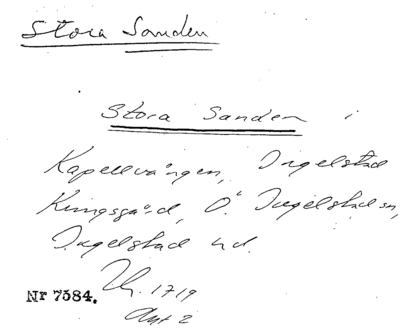 Stora Sanden
Stora Sanden i
Kapellvången, Ingelstad
Kungsgård, Ö. Ingelstad sn,
Ingelstad hd.
1719
Nr 7584.
Akt 2